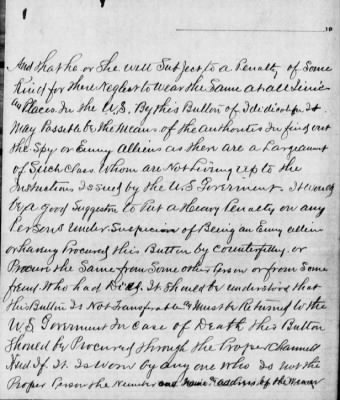 1
19
And that he or She will Subject to a Penalty of Some
Kind for there Neglect to wear the Same at all times
an Places In the U.S. By this Button of It
May Possibl be the Means of the Authorites In find out
the Spy or Enmy Alliens as there are a Large amt
of Such Class Whom are Not Living up to the
Instructions Issued by the U.S. Goverment. It would
be a good Suggestion to Put a Heavy Penalty on any
Persons under Suspicion of Being an Enmy allien
or having Procured this Button by Counterfitty. or
Procure the Same from Some other Person or from Some
freind Who had Died. It Should be understood that
this Button Is Not Transferable & Must be Returned to the
U.S. Goverment In Case of Death this Button
Should be Procured through the Proper Channell
And If It Is worn by any one who Is not the
Proper Person the Number and Name & address of the Wearer